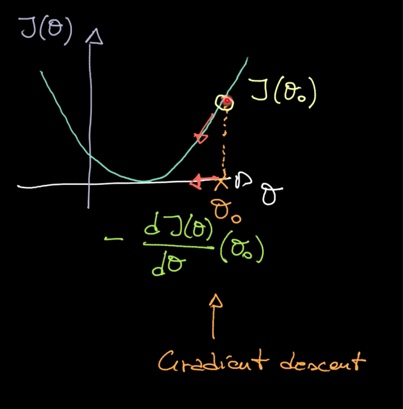 J(θ)
J(θ₀)
θ
θ₀
- dJ(θ)/dθ (θ₀)
Gradient descent